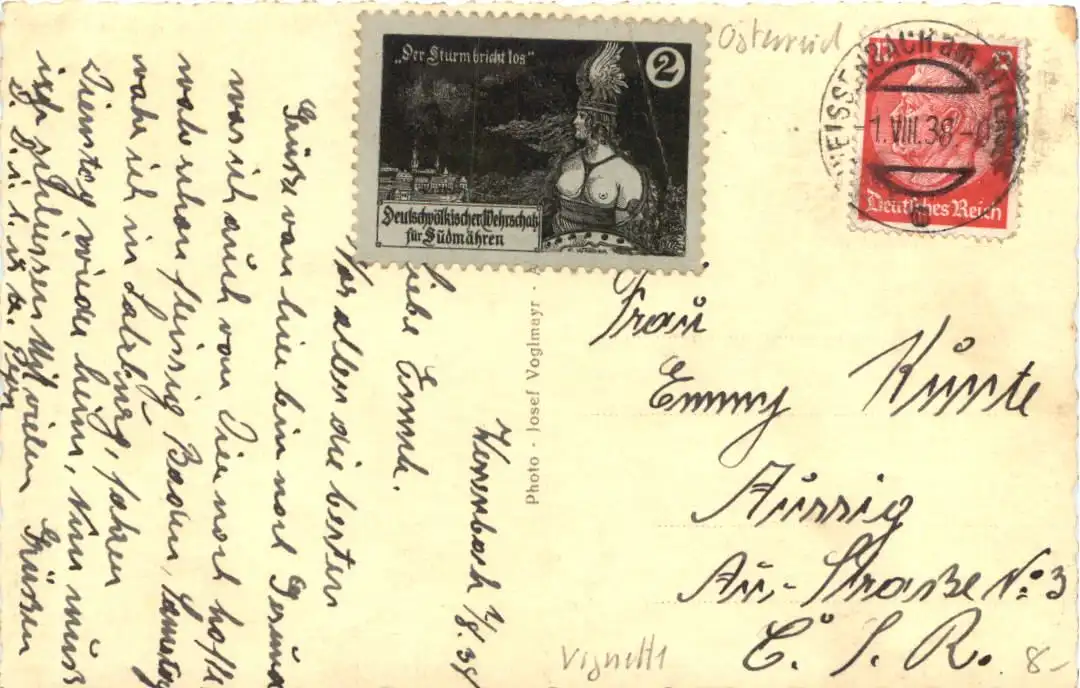 Österreich
„Der Sturm bricht los“
2
Deutschvölkischer Wehrschatz
für Südmähren
WEISSENBACH am ATTERSEE
-1.VIII.38-
12 12
Deutsches Reich
Photo · Josef Voglmayr ·
Frau
Emmy Kunte
Aussig
Au-Straße No 3
Č. S. R.
Vignette
8-
Weissenbach 1/8. 38
Liebe Emmh.
Vor allem die besten
Grüsse von hier bin noch Gesund
was ich auch von Dir noch hoffe
wahr schon fleissig Baden, Samstag
wahr ich in Salzburg, fahren
Dienstag wieder heim, Nun muß
ich schliessen Mit vielen Grüßen